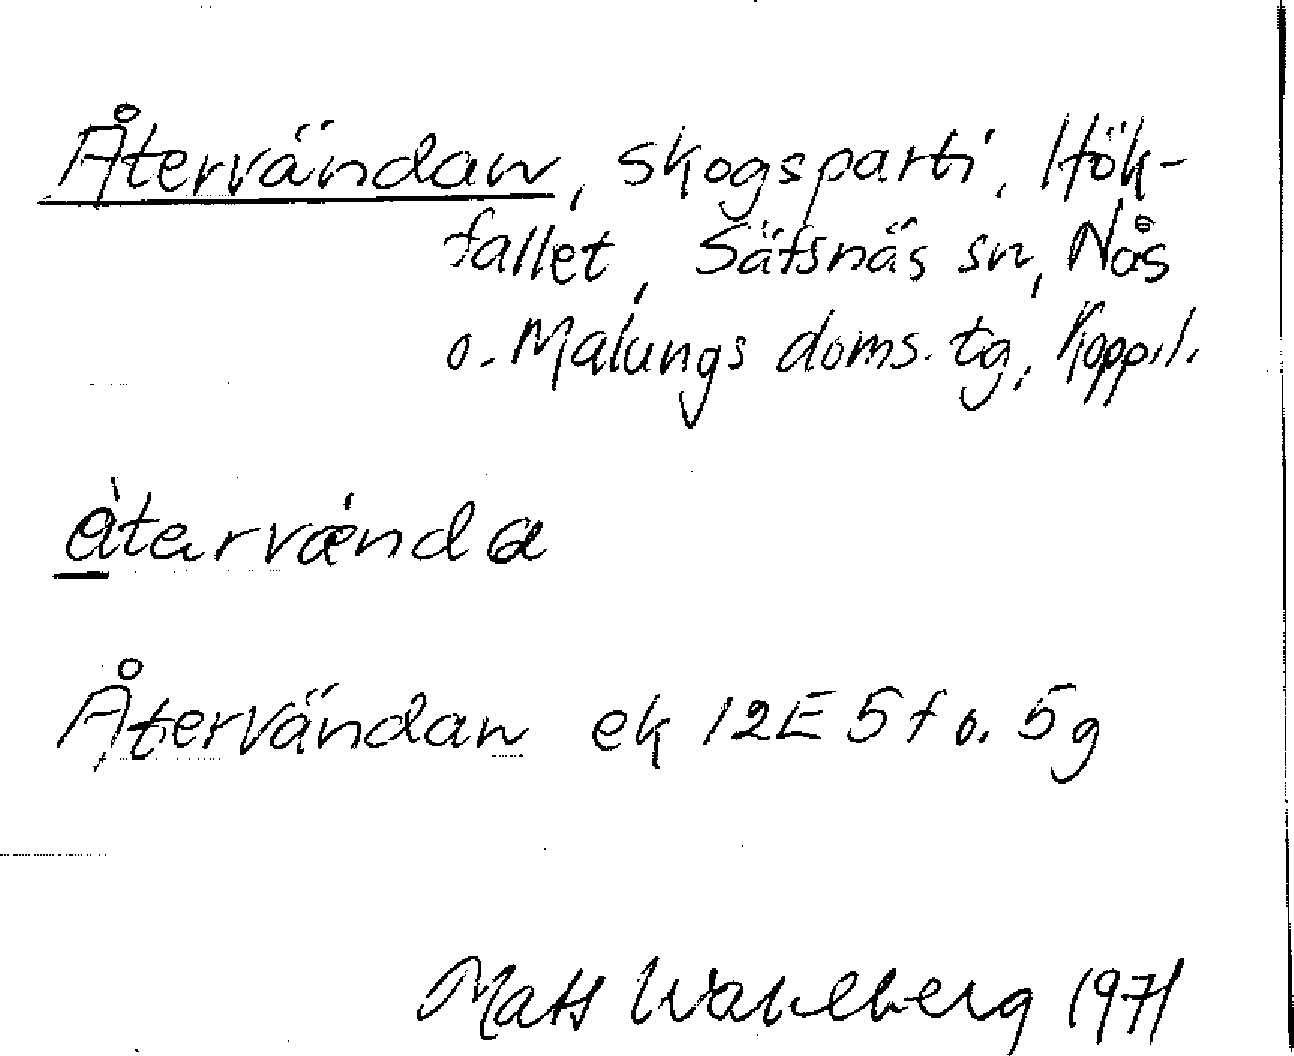 Återvändan, skogsparti, Hök-
fallet, Säfsnäs sn, Nås
o. Malungs doms. tg, Kopp.l.
àtərvǽnda
Återvändan ek 12E 5f o. 5g
Mats Wahlberg 1971